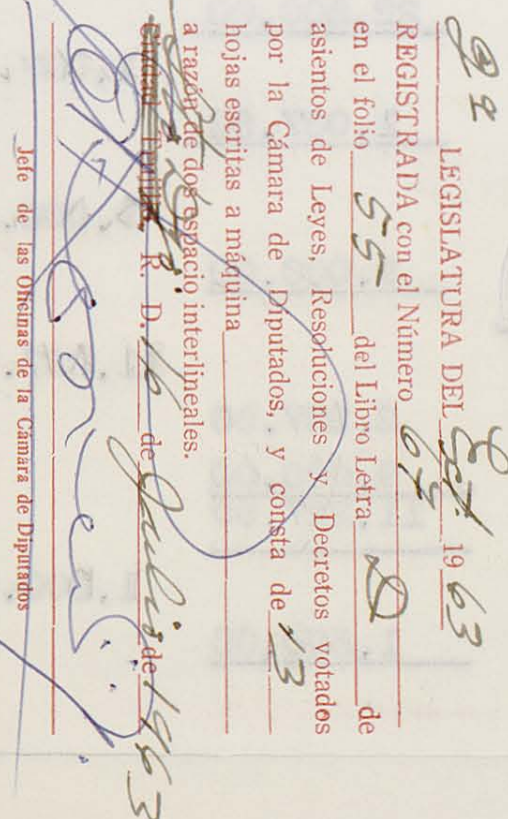 22 LEGISLATURA DEL Ext. 1963
REGISTRADA con el Número 67
en el folio 55 del Libro Letra D de
asientos de Leyes, Resoluciones y Decretos votados
por la Cámara de Diputados, y consta de 13
hojas escritas a máquina
a razón de dos espacio interlineales.
R. D. 16 de Julio de 1963
Jefe de las Oficinas de la Cámara de Diputados